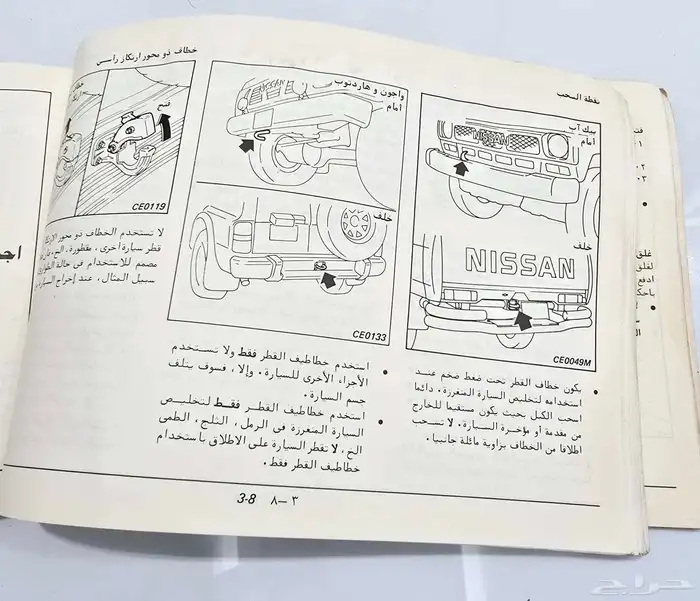 نقطة السحب
بيك آب
أمام
NISSAN
خلف
NISSAN
CE0049M
يكون خطاف القطر تحت ضغط ضخم عند
استخدامه لتخليص السيارة المنغرزة. دائما
اسحب الكبل بحيث يكون مستقيما للخارج
من مقدمة أو مؤخرة السيارة. لا تسحب
اطلاقا من الخطاف بزاوية مائلة جانبيا.
واجون و هاردتوب
أمام
NISSAN
خلف
CE0133
استخدم خطاطيف القطر فقط ولا تستخدم
الأجزاء الأخرى للسيارة. وإلا، فسوف يتلف
جسم السيارة.
استخدم خطاطيف القطر فقط لتخليص
السيارة المنغرزة في الرمل، الثلج، الطمى
الخ. لا تقطر السيارة على الاطلاق باستخدام
خطاطيف القطر فقط.
خطاف ذو محور ارتكاز رأسي
فتح
CE0119
لا تستخدم الخطاف ذو محور
قطر سيارة أخرى، مقطورة،
مصمم للاستخدام في حالة
سبيل المثال، عند إخراج
3-8 ٣–٨
حراج